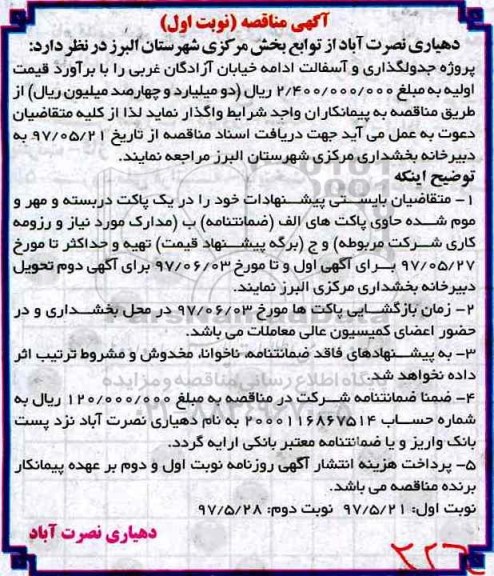 آگهی مناقصه (نوبت اول)
دهیاری نصرت آباد از توابع بخش مرکزی شهرستان البرز در نظر دارد:
پروژه جدولگذاری و آسفالت ادامه خیابان آزادگان غربی را با برآورد قیمت
اولیه به مبلغ ۲/۴۰۰/۰۰۰/۰۰۰ ریال (دو میلیارد و چهارصد میلیون ریال) از
طریق مناقصه به پیمانکاران واجد شرایط واگذار نماید لذا از کلیه متقاضیان
دعوت به عمل می آید جهت دریافت اسناد مناقصه از تاریخ ۹۷/۰۵/۲۱ به
دبیرخانه بخشداری مرکزی شهرستان البرز مراجعه نمایند.
توضیح اینکه
۱- متقاضیان بایستی پیشنهادات خود را در یک پاکت دربسته و مهر و
موم شده حاوی پاکت های الف (ضمانتنامه) ب (مدارک مورد نیاز و رزومه
کاری شرکت مربوطه) و ج (برگه پیشنهاد قیمت) تهیه و حداکثر تا مورخ
۹۷/۰۵/۲۷ برای آگهی اول و تا مورخ ۹۷/۰۶/۰۳ برای آگهی دوم تحویل
دبیرخانه بخشداری مرکزی البرز نمایند.
۲- زمان بازگشایی پاکت ها مورخ ۹۷/۰۶/۰۳ در محل بخشداری و در
حضور اعضای کمیسیون عالی معاملات می باشد.
۳- به پیشنهادهای فاقد ضمانتنامه، ناخوانا، مخدوش و مشروط ترتیب اثر
داده نخواهد شد.
۴- ضمنا ضمانتنامه شرکت در مناقصه به مبلغ ۱۲۰/۰۰۰/۰۰۰ ریال به
شماره حساب ۲۰۰۰۱۱۶۸۶۷۵۱۴ به نام دهیاری نصرت آباد نزد پست
بانک واریز و یا ضمانتنامه معتبر بانکی ارایه گردد.
۵- پرداخت هزینه انتشار آگهی روزنامه نوبت اول و دوم بر عهده پیمانکار
برنده مناقصه می باشد.
نوبت اول: ۹۷/۵/۲۱ نوبت دوم: ۹۷/۵/۲۸
دهیاری نصرت آباد